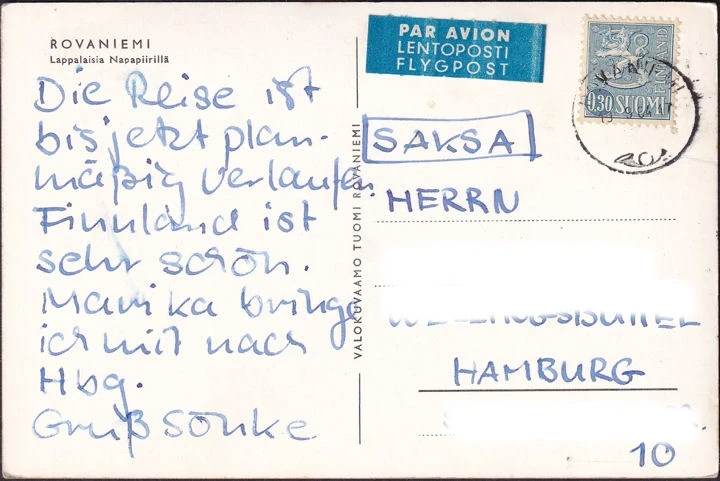 ROVANIEMI
Lappalaisia Napapiirillä
Die Reise ist
bis jetzt plan-
mäßig verlaufen.
Finnland ist
sehr schön.
Marika bringe
ich mit nach
Hbg.
Gruß Sönke
VALOKUVAAMO TUOMI ROVANIEMI
PAR AVION
LENTOPOSTI
FLYGPOST
0,30 SUOMI
FINLAND
SAKSA
HERRN
HAMBURG
10